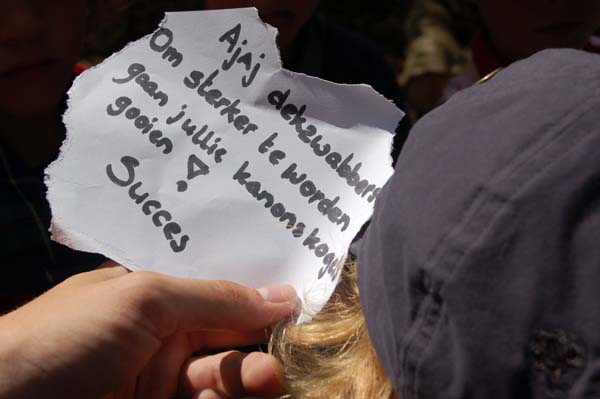 Ajaj dekzwabbers
Om sterker te worden
gaan jullie kanonskogel
gooien!
Succes